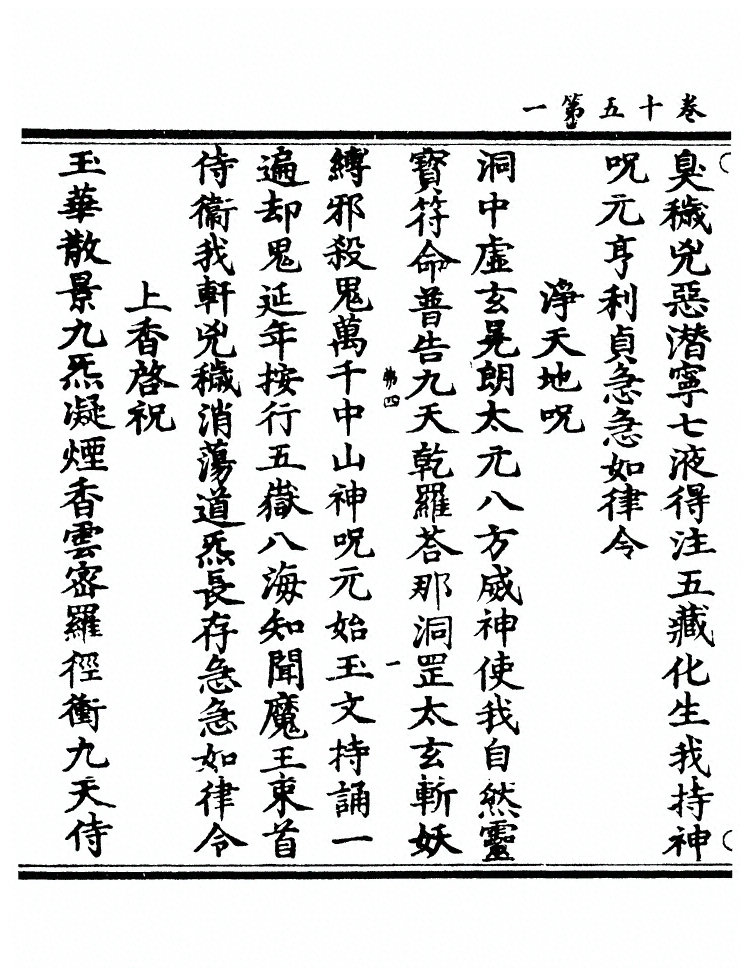 卷十五第一
臭穢兇惡潛寧七液得注五藏化生我持神
呪元亨利貞急急如律令
淨天地呪
洞中虛玄晃朗太元八方威神使我自然靈
寳符命普告九天乾羅荅那洞罡太玄斬妖
第四
一
縛邪殺鬼萬千中山神呪元始玉文持誦一
遍却鬼延年按行五嶽八海知聞魔王束首
侍衞我軒兇穢消蕩道炁長存急急如律令
上香啓祝
玉華散景九炁凝煙香雲密羅徑衝九天侍